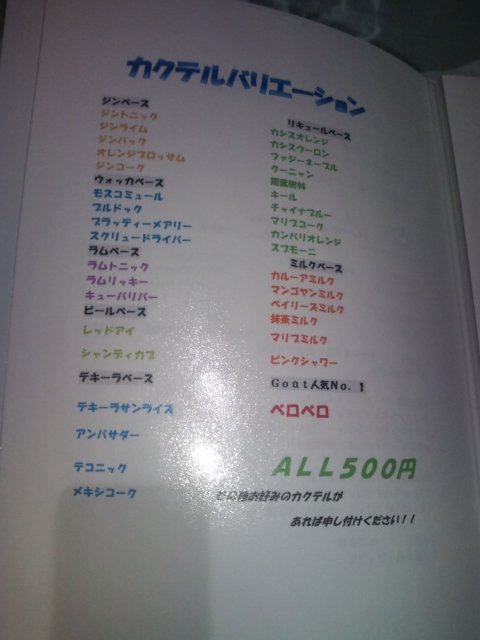 カクテルバリエーション
ジンベース
ジントニック
ジンライム
ジンバック
オレンジブロッサム
ジンコーク
ウォッカベース
モスコミュール
ブルドック
ブラッディーメアリー
スクリュードライバー
ラムベース
ラムトニック
ラムリッキー
キューバリバー
ビールベース
レッドアイ
シャンディガフ
テキーラベース
テキーラサンライズ
アンバサダー
テコニック
メキシコーク
リキュールベース
カシスオレンジ
カシスウーロン
ファジーネーブル
クーニャン
照葉樹林
キール
チャイナブルー
マリブコーク
カンパリオレンジ
スプモーニ
ミルクベース
カルーアミルク
マンゴヤンミルク
ベイリーズミルク
抹茶ミルク
マリブミルク
ピンクシャワー
Gout人気No.1
ベロベロ
ALL500円
その他お好みのカクテルが
あれば申し付けください!!